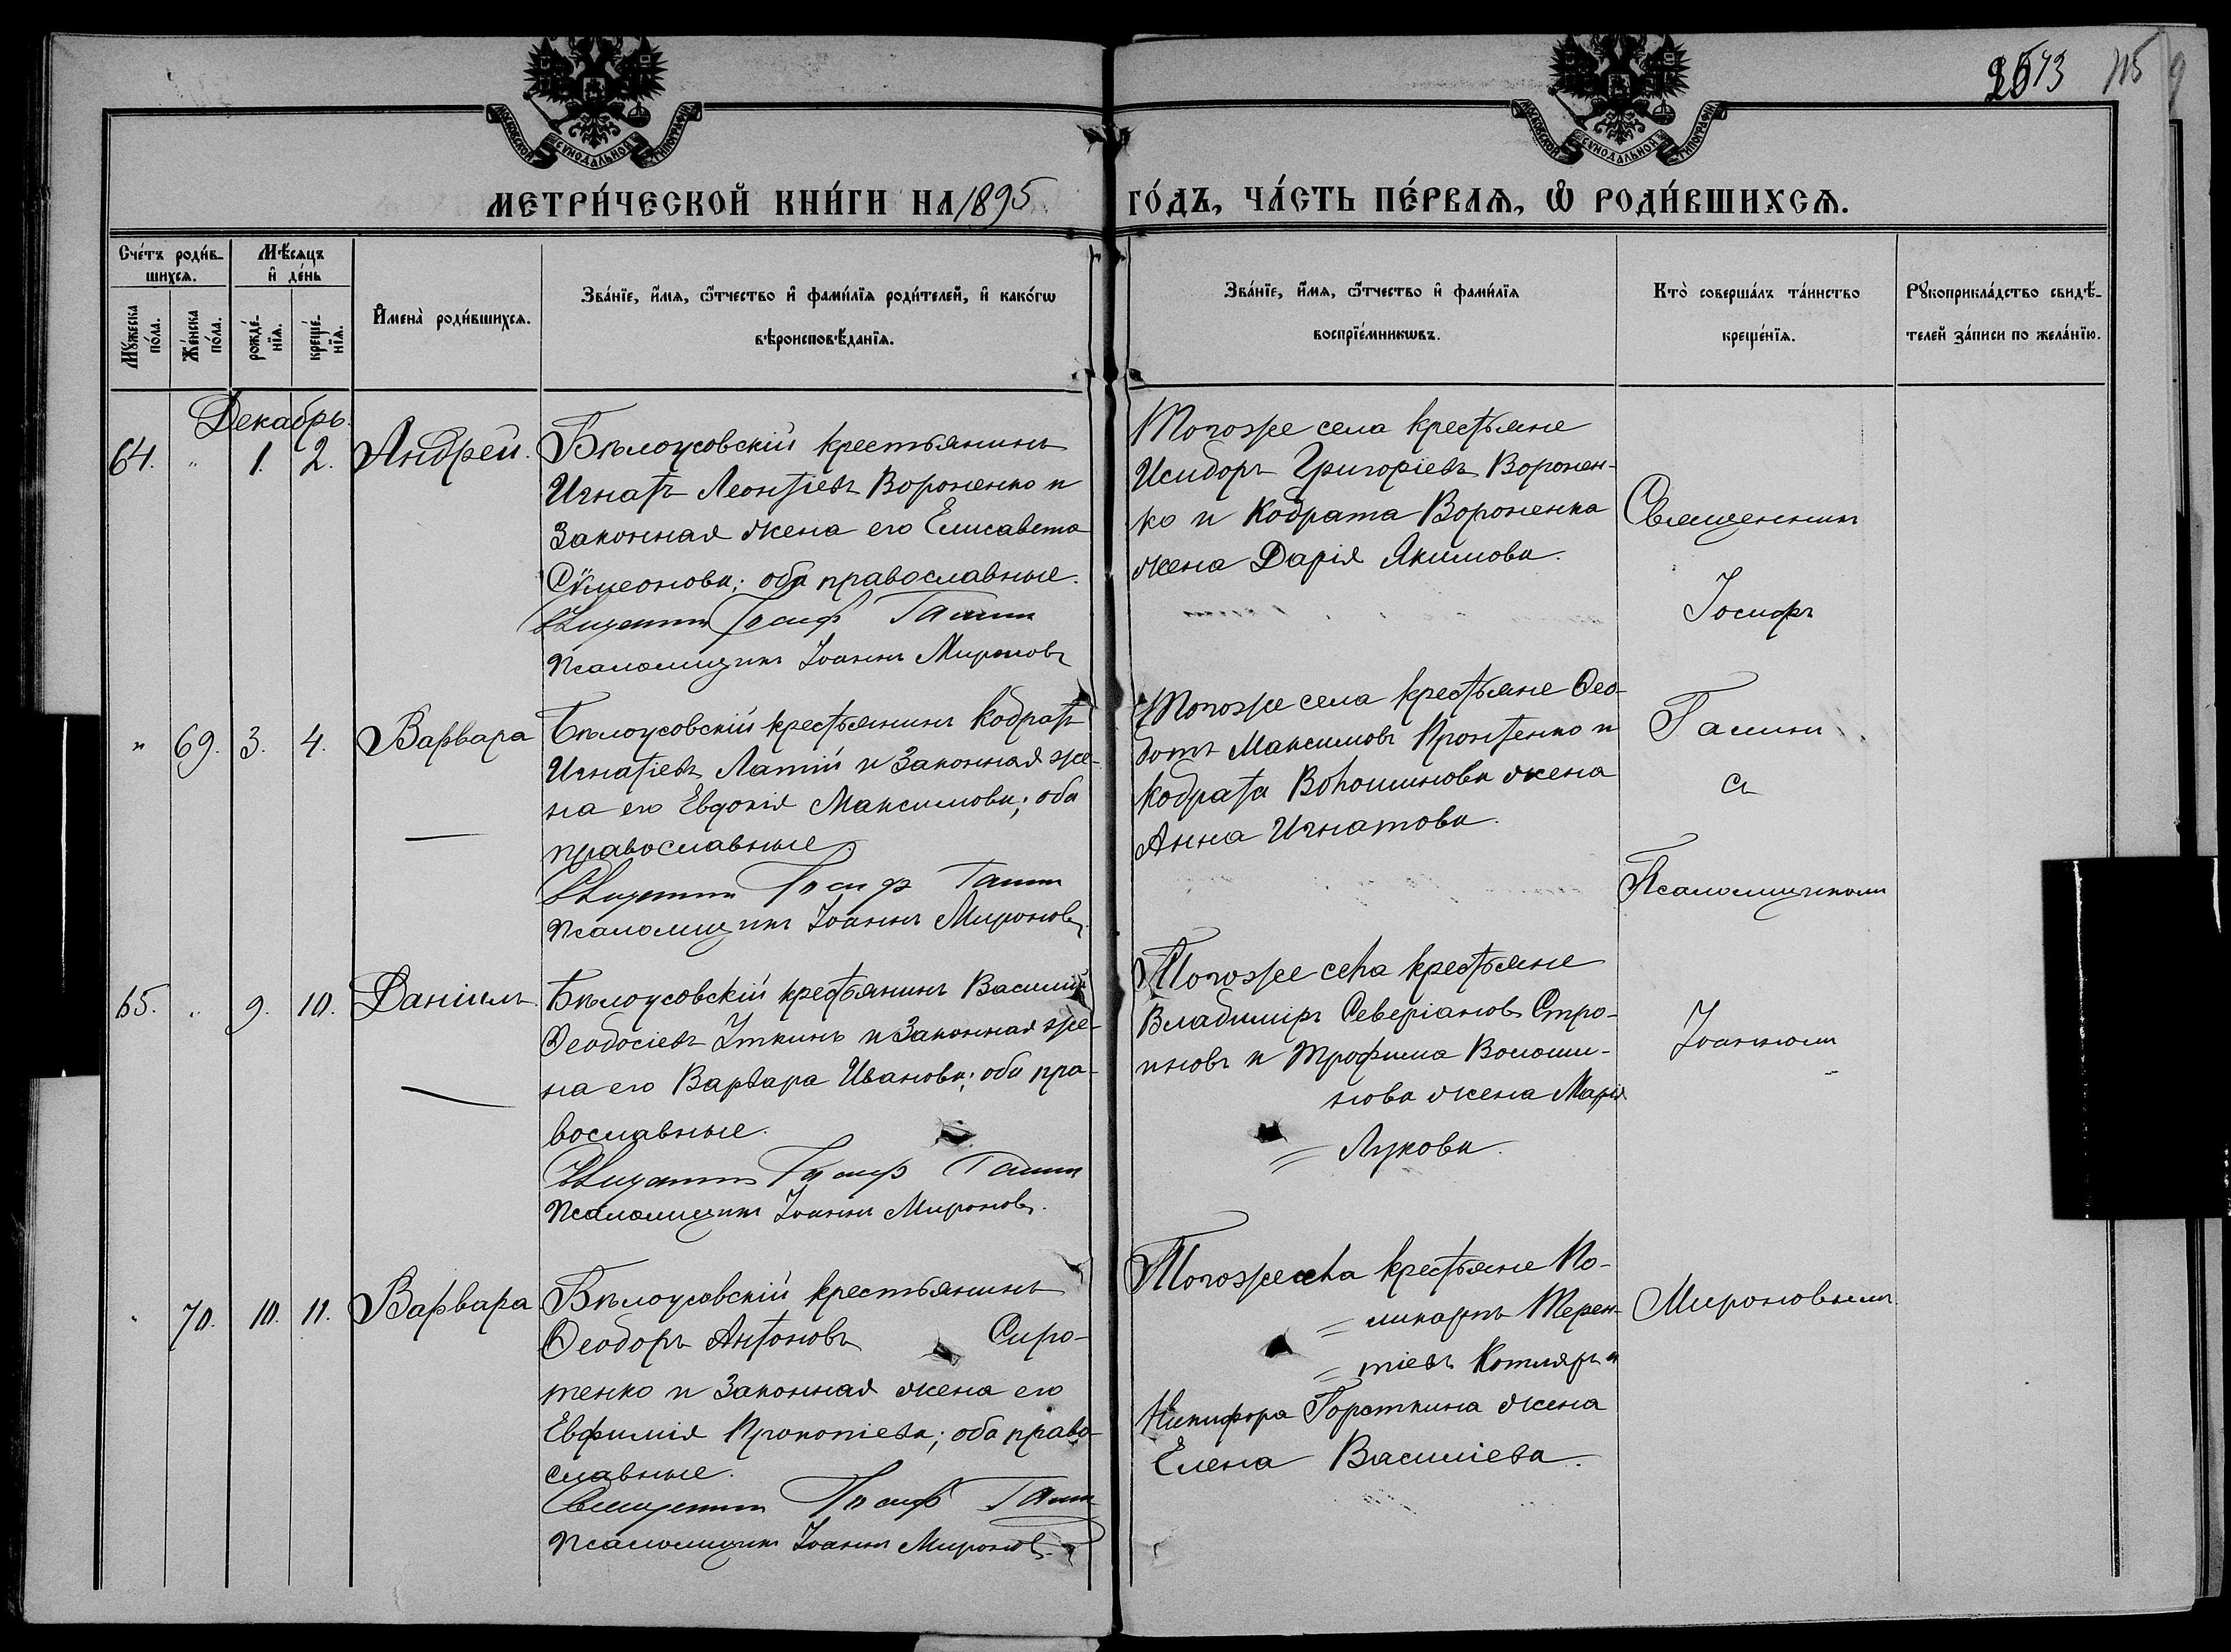 2573 115
МОСКОВСКОЙ СѴНОДАЛЬНОЙ ТИПОГРАФІИ
МОСКОВСКОЙ СѴНОДАЛЬНОЙ ТИПОГРАФІИ
МЕТРИ́ЧЕСКОЙ КНИ́ГИ НА 1895 ГО́ДЪ, ЧА́СТЬ ПЕ́РВАѦ, Ѡ҆ РОДИ́ВШИХСѦ.
Сче́тъ роди́в-
шихсѧ.
Мꙋ́жеска по́ла.
Же́нска по́ла.
Мѣ́сѧцъ
и҆ де́нь
рожде́-
нїѧ.
креще́-
нїѧ.
И҆мена̀ роди́вшихсѧ.
Зва́нїе, и҆́мѧ, ѻ҆́тчество и҆ фами́лїѧ роди́телей, и҆ како́гѡ
вѣроисповѣ́данїѧ.
Зва́нїе, и҆́мѧ, ѻ҆́тчество и҆ фами́лїѧ
воспрїе́мникѡвъ.
Кто̀ соверша́лъ та́инство
креще́нїѧ.
Рꙋкоприкла́дство свидѣ́-
телей за́писи по жела́нїю.
Декабрь.
64. „ 1. 2. Андрей.
Бѣлоусовскій крестьянинъ
Игнатъ Леонтіевъ Вороненко и
законная жена его Елисавета
Сѷмеонова; оба православные.
Священникъ Іосиф Галин
Псаломщикъ Іоаннъ Мироновъ
Тогоже села крестьяне
Исидоръ Григоріевъ Воронен-
ко и Кодрата Вороненка
жена Дарія Якимова.
Священникъ
Іосифъ
Галинъ
съ
Псаломщикомъ
Іоанномъ
Мироновымъ
„ 69. 3. 4. Варвара
Бѣлоусовскій крестьянинъ Кодратъ
Игнатіевъ Латій и законная же-
на его Евдокія Максимова; оба
православные.
Священникъ Іосиф Галин
Псаломщикъ Іоаннъ Мироновъ
Тогоже села крестьяне Ѳео-
дотъ Максимовъ Пронтенко и
Кодрата Волошинова жена
Анна Игнатова.
65. „ 9. 10. Даніилъ.
Бѣлоусовскій крестьянинъ Василій
Ѳеодосіевъ Уткинъ и законная же-
на его Варвара Иванова; оба пра-
вославные.
Священникъ Іосиф Галин
Псаломщикъ Іоаннъ Мироновъ.
Тогоже села крестьяне
Владиміръ Северіановъ Стро-
иновъ и Трофима Волоши-
нова жена Марія
= Лукова.
„ 70. 10. 11. Варвара
Бѣлоусовскій крестьянинъ
Ѳеодоръ Антоновъ Сиро-
тенко и законная жена его
Евфимія Прокопіева; оба право-
славные.
Священникъ Іосиф Галин
Псаломщикъ Іоаннъ Мироновъ
Тогоже села крестьяне По-
= ликарпъ Терен-
= тіевъ Котляръ и
Никифора Горсткина жена
Елена Василіева.